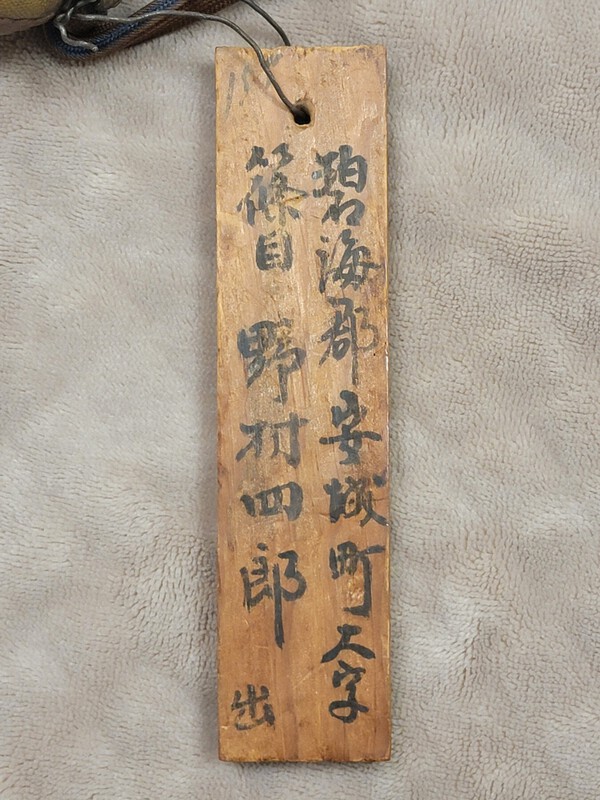 碧海郡安城町大字
篠目 野村四郎 出